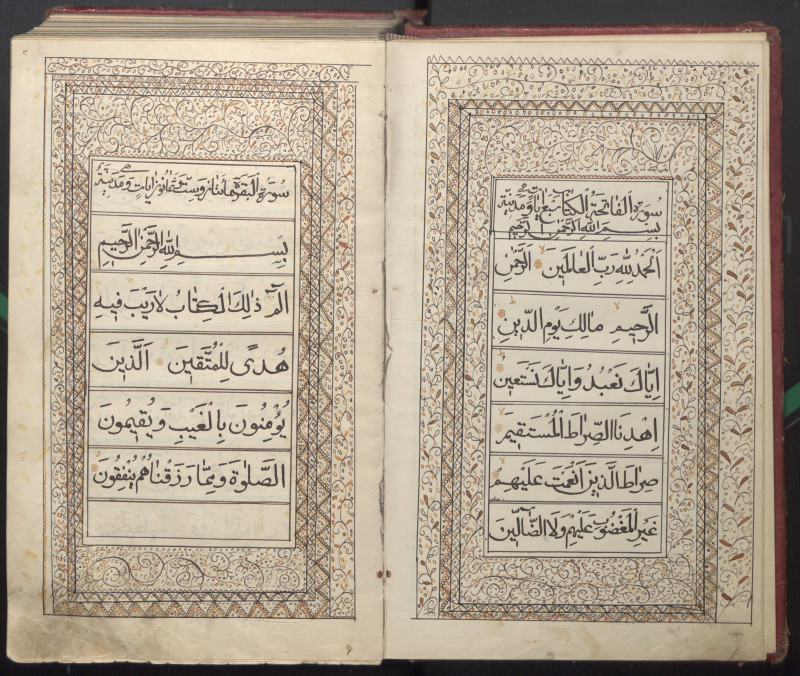 سورة الفاتحة الكتاب سبع ايات ومدنية
بسم الله الرحمن الرحيم
اَلْحَمْدُ لِلّٰهِ رَبِّ الْعَالَمِينَ الرَّحْمٰنِ
الرَّحِيمِ مَالِكِ يَوْمِ الدِّينِ
اِيَّاكَ نَعْبُدُ وَاِيَّاكَ نَسْتَعِين
اِهْدِنَا الصِّرَاطَ الْمُسْتَقِيمَ
صِرَاطَ الَّذِينَ اَنْعَمْتَ عَلَيْهِمْ
غَيْرِ الْمَغْضُوبِ عَلَيْهِمْ وَلَا الضَّآلِّينَ
سورة البقرة مائتان وست وثمانون ايات ومدنية
بِسْمِ اللهِ الرَّحْمٰنِ الرَّحِيمِ
الٓمٓ ذٰلِكَ الْكِتَابُ لَارَيْبَ فِيهِ
هُدًى لِلْمُتَّقِينَ اَلَّذِينَ
يُؤْمِنُونَ بِالْغَيْبِ وَيُقِيمُونَ
الصَّلٰوةَ وَمِمَّا رَزَقْنَاهُمْ يُنْفِقُونَ